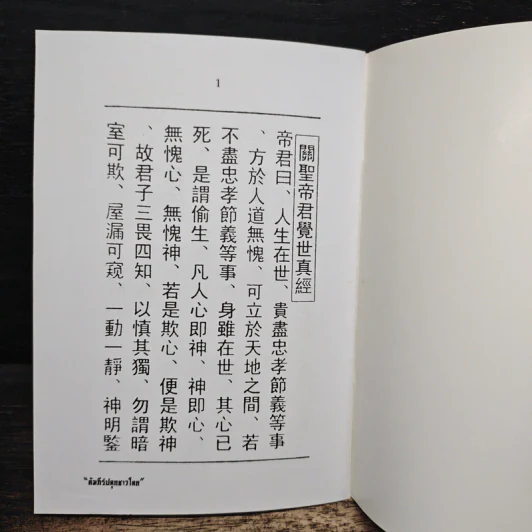 1
關聖帝君覺世真經
帝君曰、人生在世、貴盡忠孝節義等事
、方於人道無愧、可立於天地之間、若
不盡忠孝節義等事、身雖在世、其心已
死、是謂偷生、凡人心即神、神即心、
無愧心、無愧神、若是欺心、便是欺神
、故君子三畏四知、以慎其獨、勿謂暗
室可欺、屋漏可窺、一動一靜、神明鑒
"คัมภีร์ปลุกชาวโลก"